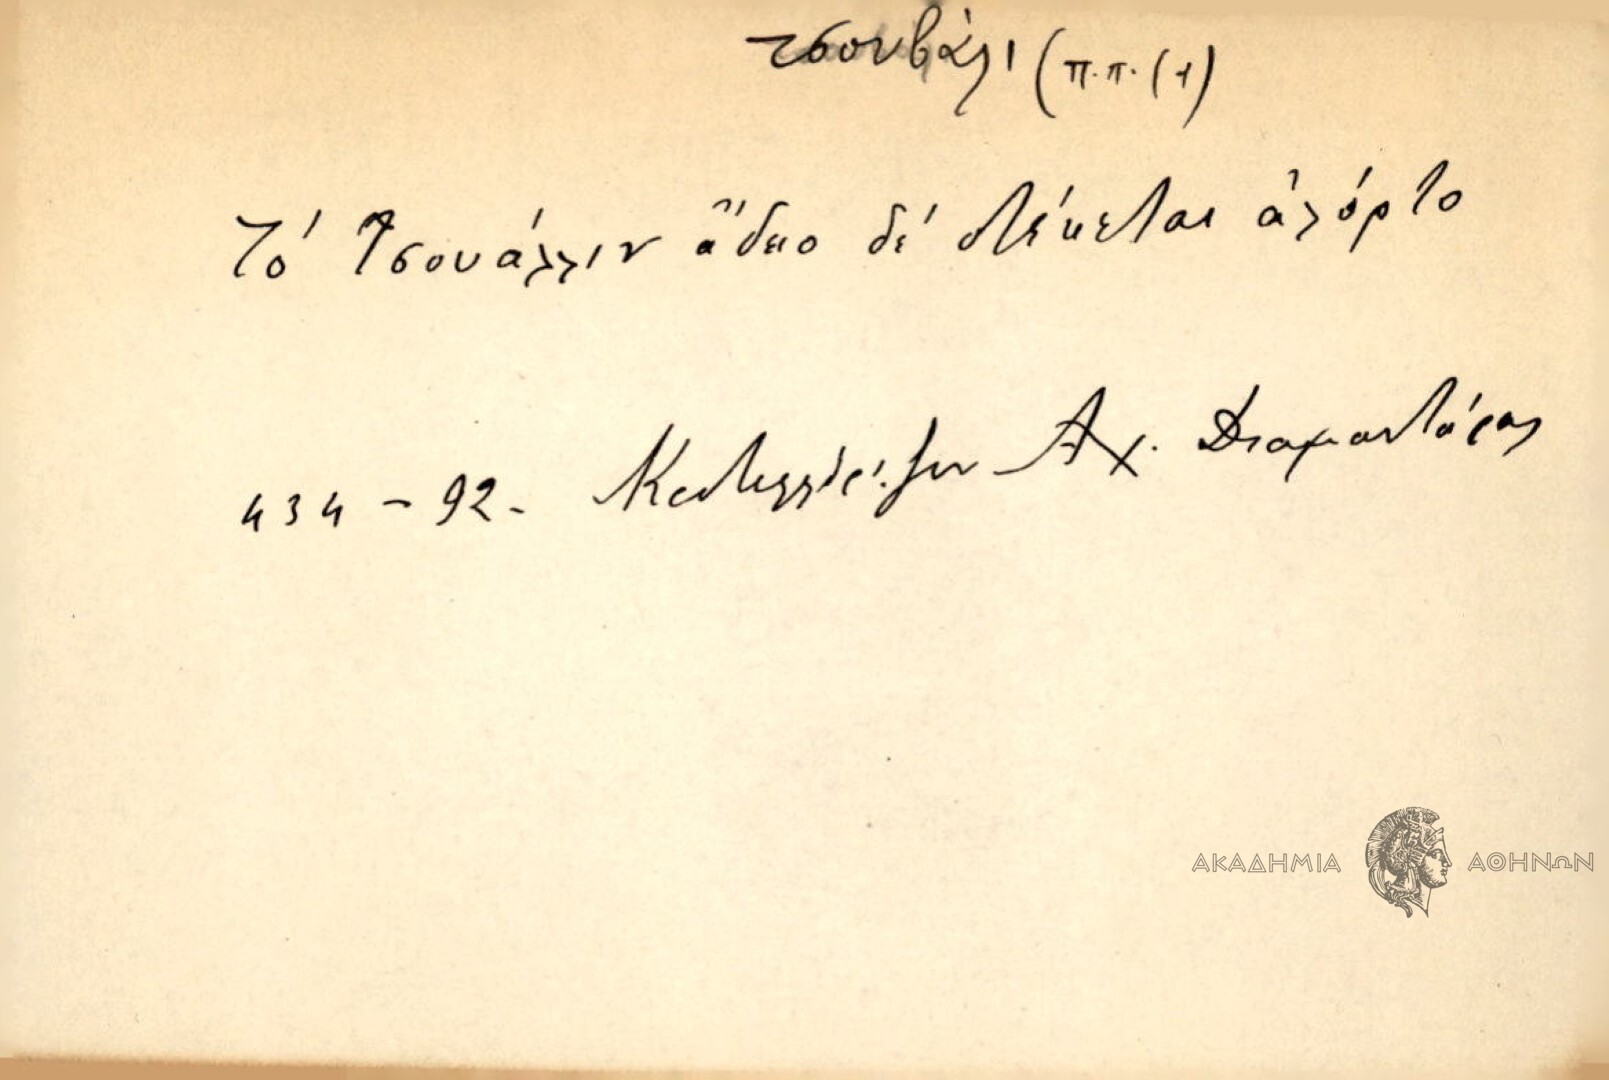 τσουβάλι (π.π. (1)
Τό Τσουάλλιν ἄδειο δέ στέκεται ἀλόρτο
434 - 92. Καστελλόριζον Αχ. Διαμαντάρας
ΑΚΑΔΗΜΙΑ ΑΘΗΝΩΝ